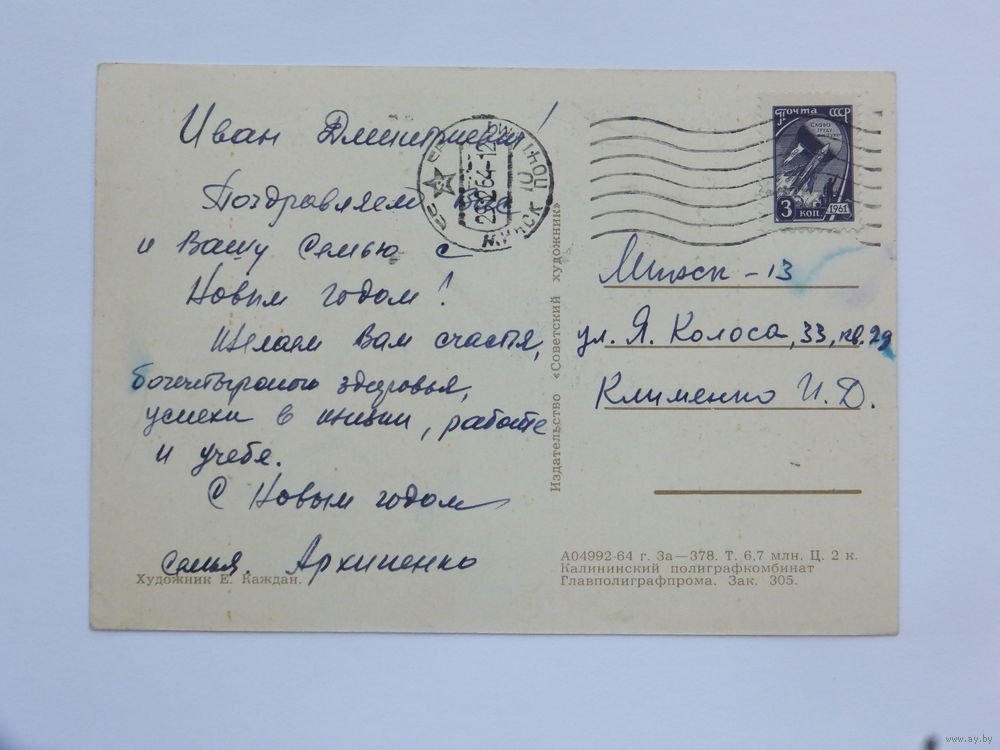 Иван Дмитриевич!
Поздравляем Вас
и Вашу семью с
Новым годом!
Желаем Вам счастья,
богатырского здоровья,
успехи в жизни, работе
и учебе.
С Новым годом
семья Архипенко
Художник Е. Каждан.
Издательство «Советский художник»
МИНСК
ПОЧТАМТ
Почта СССР
СЛАВА
ТРУДУ
3 коп
1961
Минск - 13
ул. Я. Колоса, 33, кв. 29
Клименко И. Д.
А04992-64 г. За—378. Т. 6,7 млн. Ц. 2 к.
Калининский полиграфкомбинат
Главполиграфпрома. Зак. 305.
www.ay.by